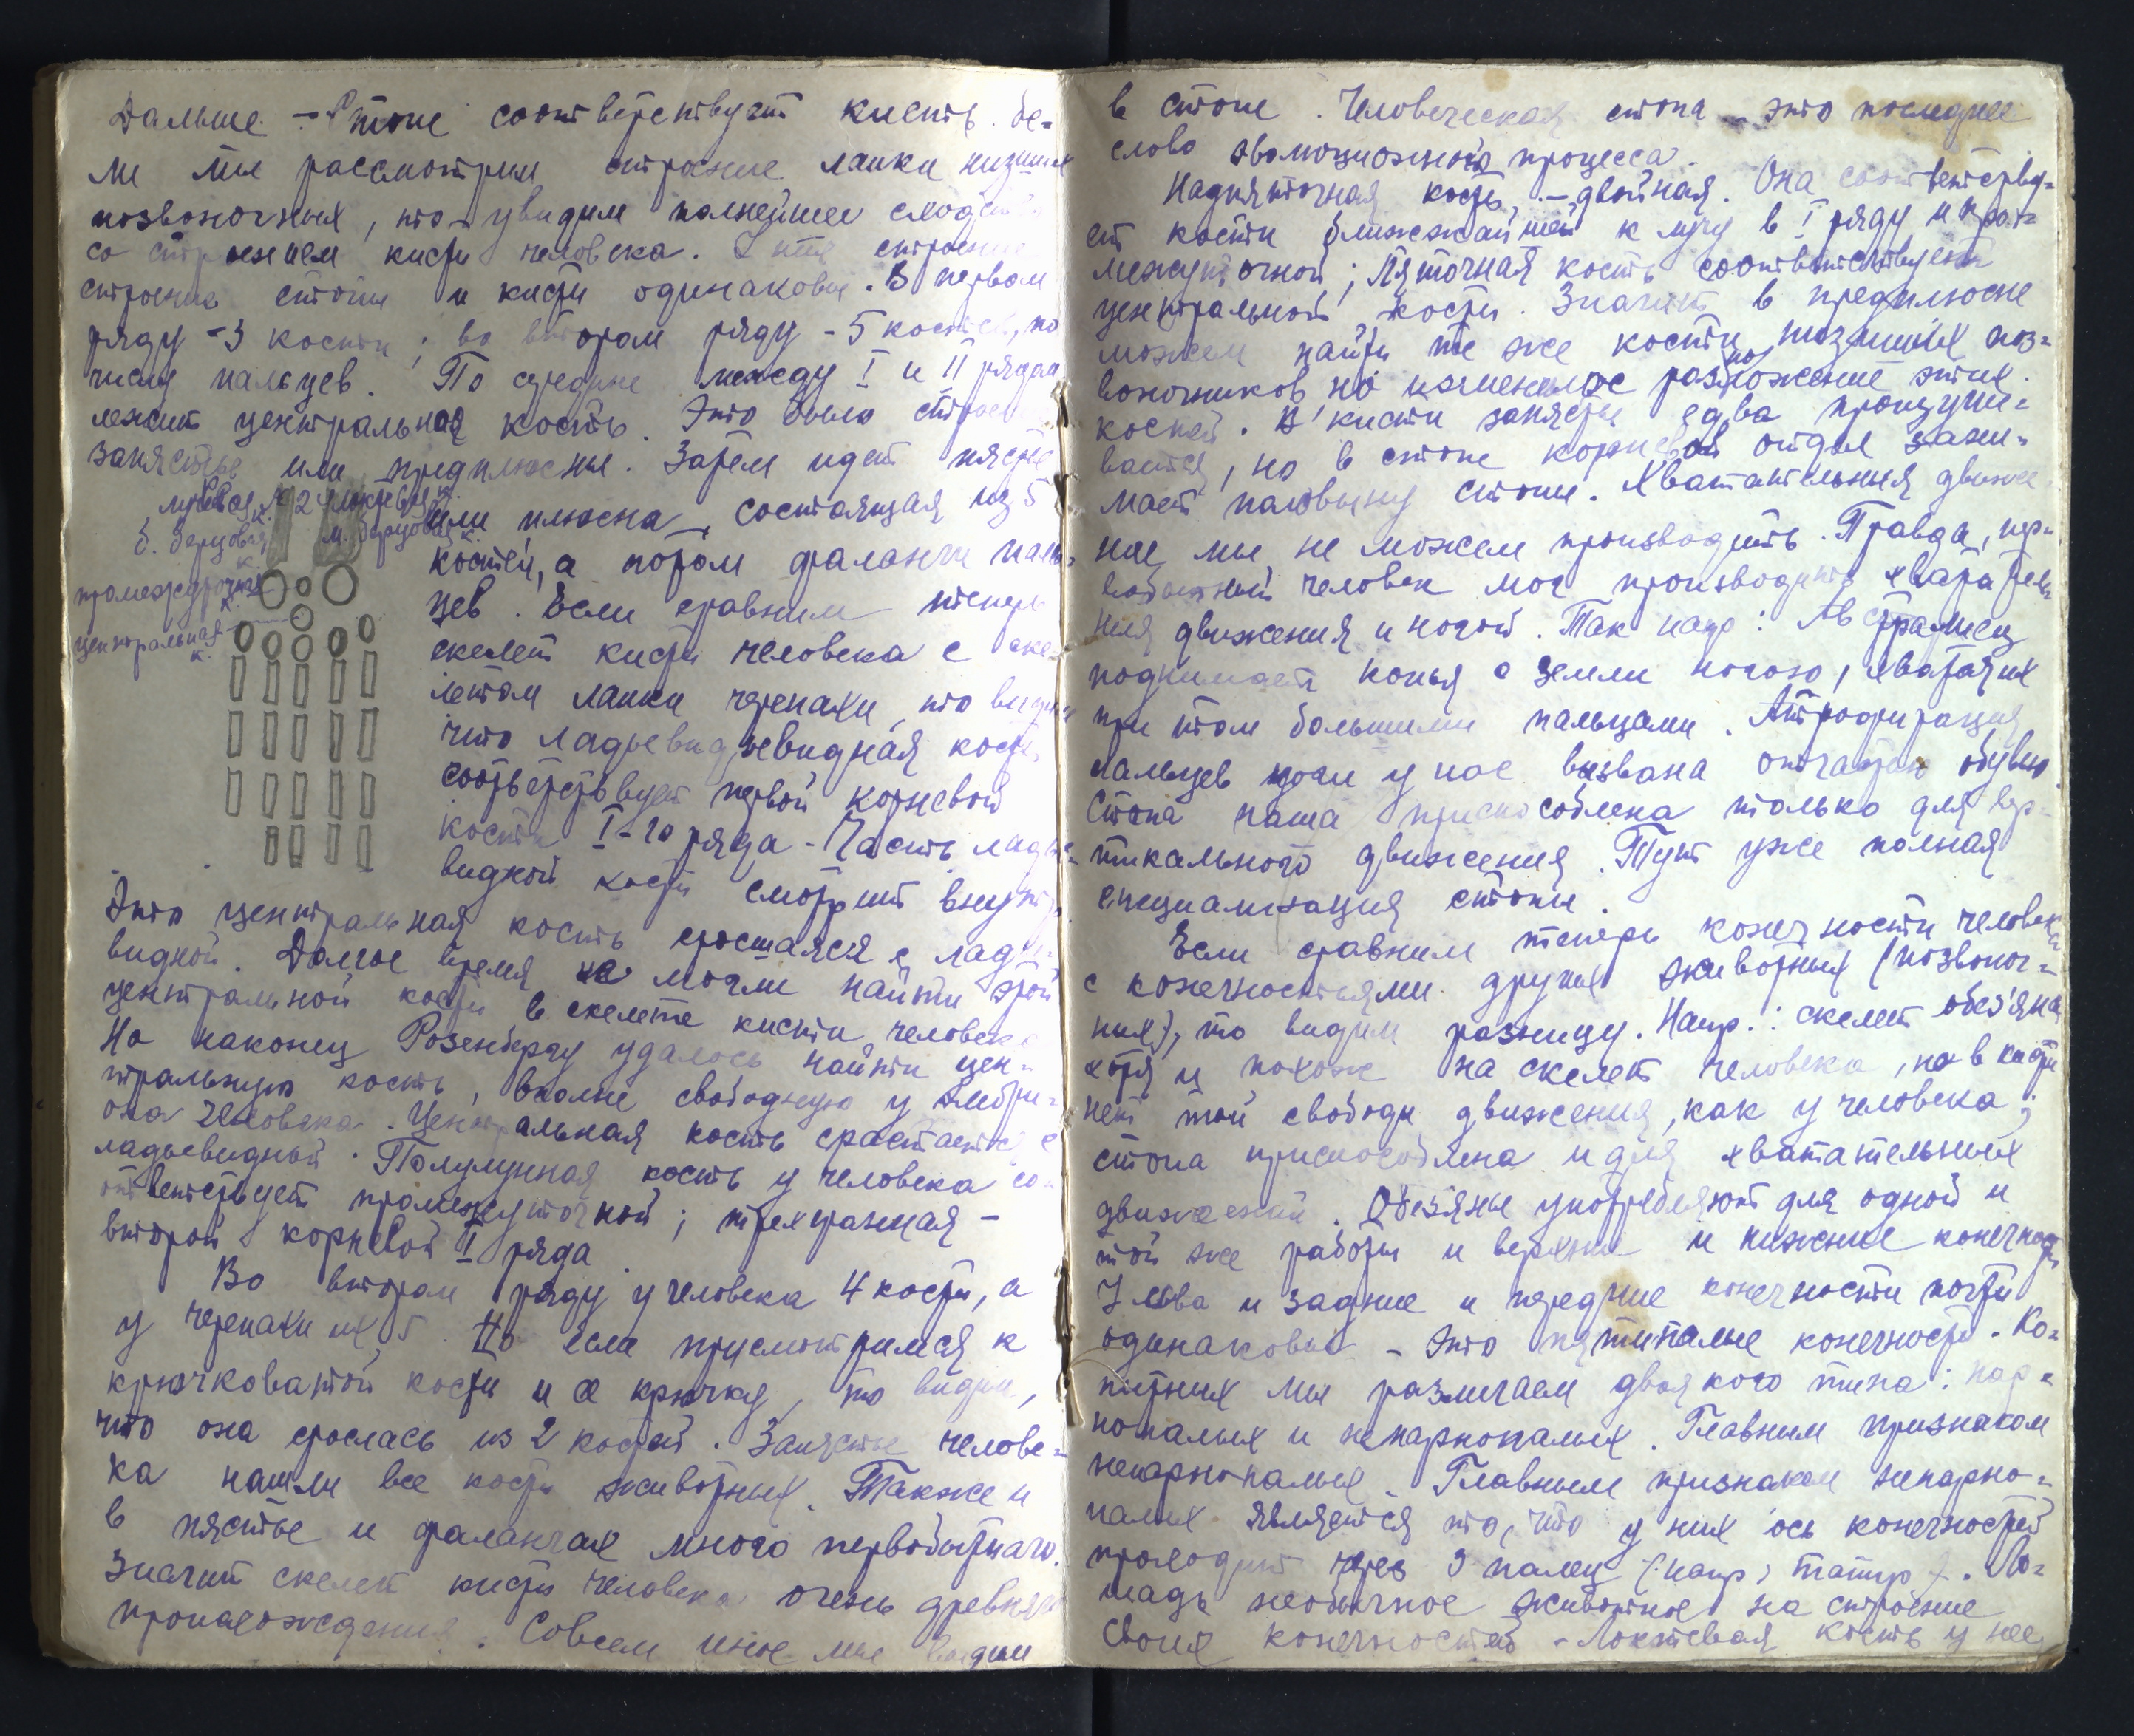 Дальше – Стопе соответствует кисть. Ес-
ли мы рассмотрим строение лапки низших
позвоночных, то увидим полнейшее сходство
со строением кисти человека. строение
строение стопы и кисти одинаковы. В первом
ряду – 3 кости; во втором ряду – 5 костей, по
числу пальцев. По средине между I и II рядом
лежит центральная кость. Это было строение
запястье или предплюсны. Затем идет пястье
или плюсна, состоящая из 5
костей, а потом фаланги паль-
цев. Если сравним теперь
скелет кисти человека с ске-
летом лапки черепахи, то видим
что ладьевид,евидная кость
соответствует первой корневой
кости I-го ряда – Часть ладье-
видной кости смотрит внутрь.
лучевая к. 2 локтевая к.
б. берцовая к. м. берцовая к.
промежуточная к.
центральная к.
Это центральная кость сросшаяся с ладье-
видной. Долгое время не могли найти этой
центральной кости в скелете кисти человека
Но наконец Розенбергу удалось найти цен-
тральную кость, вполне свободную у эмбри-
она человека. Центральная кость срастается с
ладьевидной. Полулунная кость у человека со-
ответствует промежуточной; трехгранная –
второй корневой I ряда.
Во втором ряду у человека 4 кости, а
у черепахи их 5. Но если присмотримся к
крючковатой кости и к крючку, то видим,
что она срослась из 2 костей. Запястье челове-
ка нашли все кости животных. Также и
в пястье и фалангах много первобытного.
Значит скелет кисти человека очень древнего
происхождения. Совсем иное мы видим
в стопе. Человеческая стопа – это последнее
слово эволюционного процесса.
Надпяточная кость, – двойная. Она соответству-
ет кости ближжайшей к лучу в I ряду и про-
межуточной; Пяточная кость соответствует
центральной кости. Значит в предплюсне
можем найти те же кости низших поз-
воночников но изменилос расположение этих
костей. В кисти запястье едва прощупы-
вается, но в стопе корневой отдел зани-
мает половину стопы. Хватательныя движе-
ние мы не можем производить. Правда, пер-
вобытный человек мог производить хвататель-
ныя движения и ногой. Так напр: Австралиец
поднимает копья с земли ногою, хватая их
при этом большими пальцами. Атрофирация
пальцев ноги у нас вызвана отчастью обувью.
Стопа наша приспособлена только для вер-
тикального движения. Тут уже полная
специализация стопы.
Если сравним теперь конечности человека
с конечностьями других животных (позвоноч-
ных), то видим разницу. Напр.: скелет обезъяна
хотя и похож на скелет человека, но в кисти
нет той свободы движения, как у человека;
стопа приспособлена и для хватательных
движений. Обезяны употребляют для одной и
той же работы и верхние и нижние конечности
У льва и задние и передние конечности почти
одинаковы – это пятипалые конечности. Ко-
пытных мы различаем двоякого типа: пар-
нопалых и непарнопалых. Главным признаком
непарнопалых. Главным признаком непарно-
палых является то, что у них ось конечностей
проходит через 3 палец (напр, тапир). Ло-
шадь необычное животное на строение
своих конечностей – Локтевая кость у нее